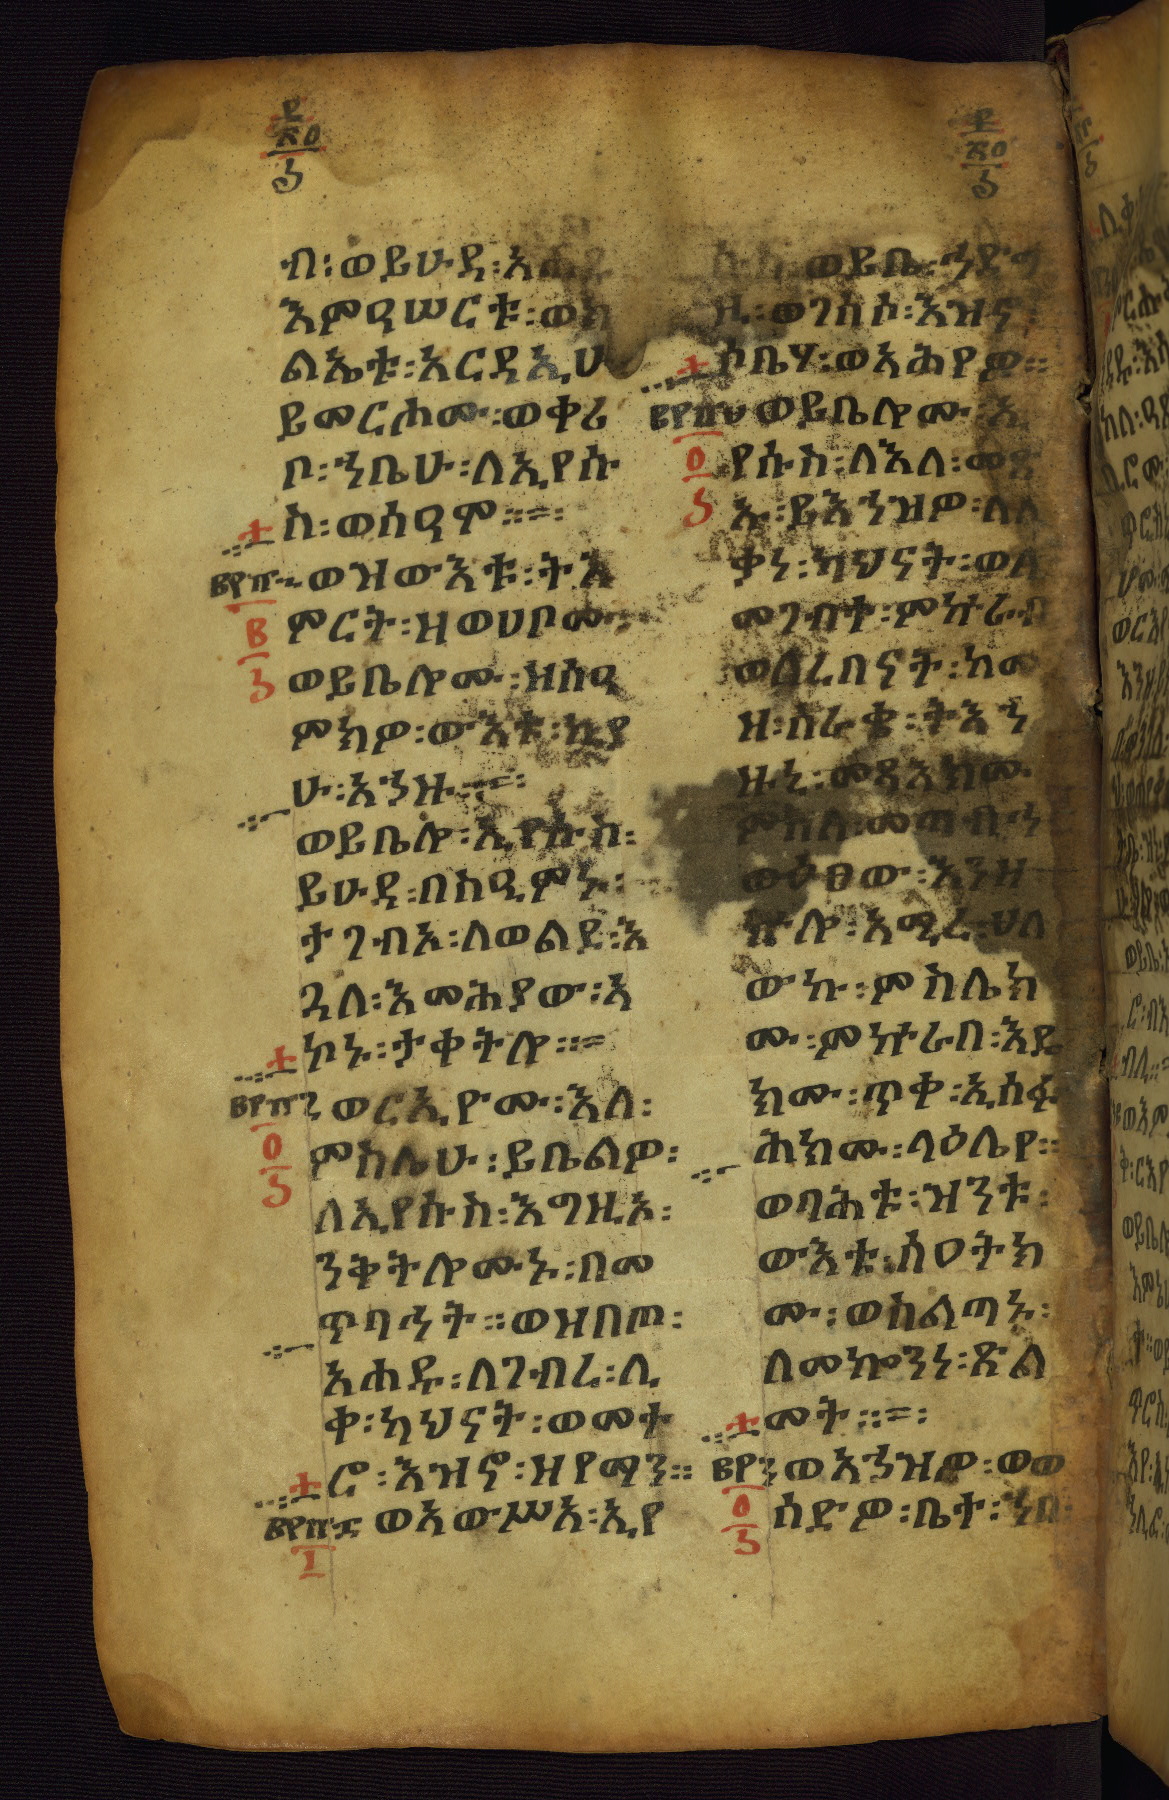 ብ፡ወይሁዳ፡
እምዐሠርቱ፡ወክ
ልኤቱ፡አርዳኢሁ
ይመርሖሙ፡ወቀሪ
ቦ፡ኀቤሁ፡ለኢየሱ
ስ፡ወሰዐሞ።
ወዝውእቱ፡ትእ
ምርት፡ዘወሀቦሙ፡
ወይቤሎሙ፡ዘሰዐ
ምክዎ፡ውእቱ፡ኪያ
ሁ፡አኀዙ።
ወይቤሎ፡ኢየሱስ፡
ይሁዳ፡በስዒምኑ፡
ታገብኦ፡ለወልደ፡እ
ጓለ፡እመሕያው፡አ
ኮኑ፡ታቀትሎ።
ወርእዮሙ፡እለ፡
ምስሌሁ፡ይቤልዎ፡
ለኢየሱስ፡እግዚኦ፡
ንቅትሎሙኑ፡በመ
ጥባኅት።ወዝበጦ፡
አሐዱ፡ለገብረ፡ሊ
ቀ፡ካህናት፡ወመተ
ሮ፡እዝኖ፡ዘየማን።
ወአውሥአ፡ኢየ
ሱስ፡ወይቤ፡ኀድግ
ዚ፡ወገሰሶ፡እዝኖ
ሶቤሃ፡ወአሕየዎ።
ወይቤሎሙ፡ኢ
የሱስ፡ለእለ፡መጽ
ኡ፡ይእኀዝዎ፡ለሊ
ቃነ፡ካህናት፡ወለ
መገብተ፡ምኵራብ
ወለረበናት፡ከመ
ዘ፡ሰራቂ፡ትእኀ
ዙኒ፡መጻእክሙ
ምስለ፡መጣብኅ
ወዕፀው፡እንዘ
ኵሎ፡አሚረ፡ሀለ
ውኩ፡ምስሌክ
ሙ፡ምኵራበ፡እዴ
ክሙ፡ጥቀ፡ኢሰፋ
ሕክሙ፡ላዕሌየ።
ወባሕቱ፡ዝንቱ፡
ውእቱ፡ሰዐትክ
ሙ፡ወስልጣኑ፡
ለመኰንነ፡ጽል
መት።
ወእኂዞሙ፡ወወ
ሰድዎ፡ቤተ፡